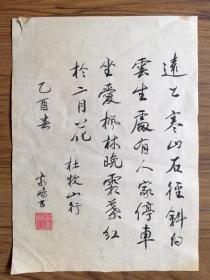 遠上寒山石徑斜白
雲生處有人家停車
坐愛楓林晚霜葉紅
於二月花 杜牧山行
乙酉春